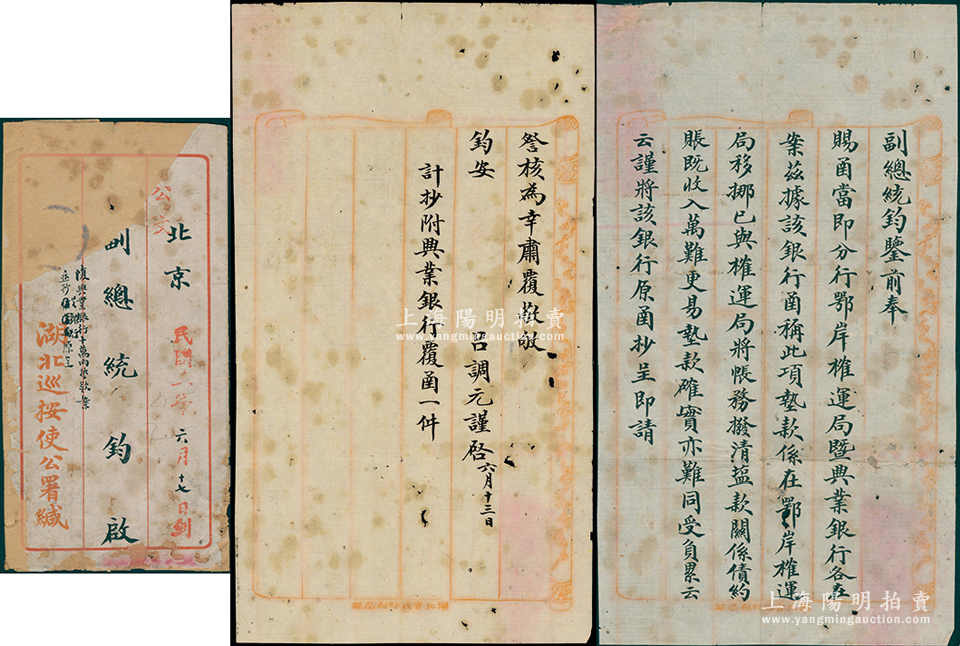 副總統鈞鑒前奉
賜函當即分行鄂岸榷運局暨興業銀行各在
案茲據該銀行函稱此項墊款係在鄂岸榷運
局移挪已與榷運局將帳務撥清鹽款關係債約
賬既收入萬難更易墊款確實亦難同受負累云
云謹將該銀行原函抄呈即請
詧核為幸肅覆敬敂
鈞安 呂調元謹啓 六月十三日
計抄附興業銀行覆函一件
公文
北京
副總統鈞啟
民國 年六月十七日到
復興業銀行十萬兩墊款案
湖北巡按使公署緘
上海陽明拍賣
www.yangmingauction.com
上海陽明拍賣
www.yangmingauction.com